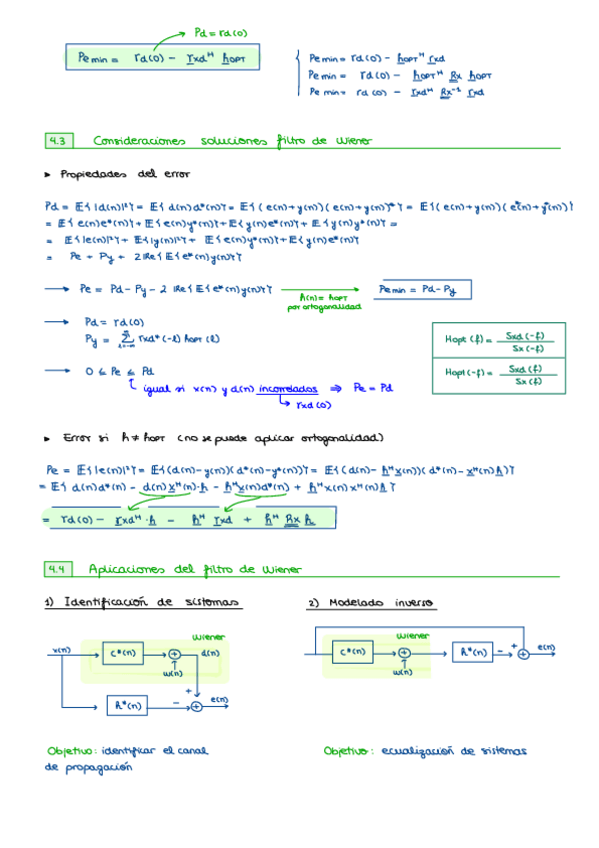 Pd = rd(0)
Pe min = rd(0) - rxdᴴ hOPT
Pe min = rd(0) - hOPTᴴ rxd
Pe min = rd(0) - hOPTᴴ Rx hOPT
Pe min = rd(0) - rxdᴴ Rx⁻¹ rxd
4.3 Consideraciones soluciones filtro de Wiener
► Propiedades del error
Pd = E{|d(n)|²} = E{d(n)d*(n)} = E{(e(n)+y(n))(e(n)+y(n))*} = E{(e(n)+y(n))(e*(n)+y*(n))}
= E{e(n)e*(n)} + E{e(n)y*(n)} + E{y(n)e*(n)} + E{y(n)y*(n)} =
= E{|e(n)|²} + E{|y(n)|²} + E{e(n)y*(n)} + E{y(n)e*(n)}
= Pe + Py + 2 Re{E{e*(n)y(n)}}
→ Pe = Pd - Py - 2 Re{E{e*(n)y(n)}} → Pe min = Pd - Py
h(n) = hOPT
por ortogonalidad
→ Pd = rd(0)
Py = Σ rxd*(-l) hOPT(l)
Hopt(f) = Sxd(-f) / Sx(-f)
Hopt(-f) = Sxd(f) / Sx(f)
→ 0 ≤ Pe ≤ Pd
igual si x(n) y d(n) incorrelados ⇒ Pe = Pd
rxd(0)
► Error si h ≠ hOPT (no se puede aplicar ortogonalidad)
Pe = E{|e(n)|²} = E{(d(n)-y(n))(d*(n)-y*(n))} = E{(d(n)-hᴴx(n))(d*(n)-xᴴ(n)h)}
= E{d(n)d*(n) - d(n)xᴴ(n)·h - hᴴx(n)d*(n) + hᴴx(n)xᴴ(n)h}
= rd(0) - rxdᴴ·h - hᴴ rxd + hᴴ Rx h
4.4 Aplicaciones del filtro de Wiener
1) Identificación de sistemas
2) Modelado inverso
Wiener
x(n) C*(n) + d(n)
w(n)
+
h*(n) - + e(n)
Wiener
C*(n) + h*(n) - + + e(n)
w(n)
Objetivo: identificar el canal
de propagación
Objetivo: ecualización de sistemas